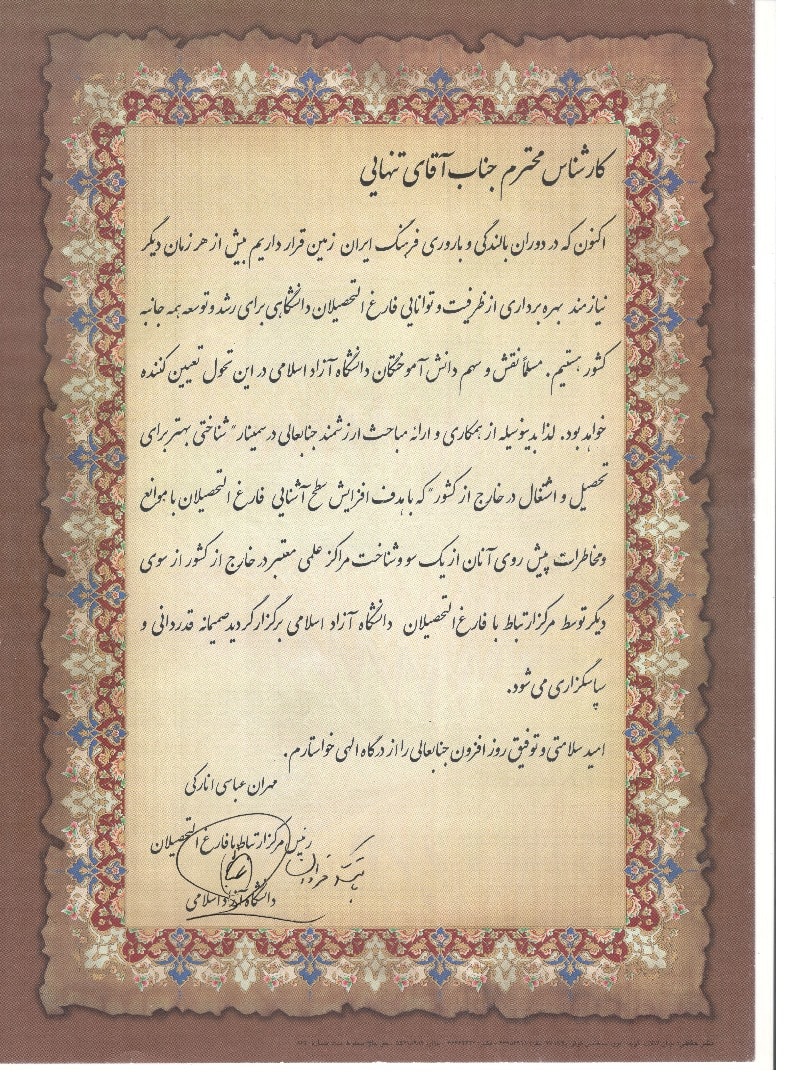 کارشناس محترم جناب آقای تنهایی
اکنون که در دوران بالندگی و باروری فرهنگ ایران زمین قرار داریم بیش از هر زمان دیگر
نیازمند بهره برداری از ظرفیت و توانایی فارغ التحصیلان دانشگاهی برای رشد و توسعه همه جانبه
کشور هستیم. مسلماً نقش و سهم دانش آموختگان دانشگاه آزاد اسلامی در این تحول تعیین کننده
خواهد بود. لذا بدینوسیله از همکاری و ارائه مباحث ارزشمند جنابعالی در سمینار "شناختی بهتر برای
تحصیل و اشتغال در خارج از کشور" که با هدف افزایش سطح آشنایی فارغ التحصیلان با موانع
ومخاطرات پیش روی آنان از یک سو وشناخت مراکز علمی معتبر در خارج از کشور از سوی
دیگر توسط مرکز ارتباط با فارغ التحصیلان دانشگاه آزاد اسلامی برگزار گردید صمیمانه قدردانی و
سپاسگزاری می شود.
امید سلامتی و توفیق روز افزون جنابعالی را از درگاه الهی خواستارم.
مهران عباسی انارکی
رئیس مرکز ارتباط با فارغ التحصیلان
دانشگاه آزاد اسلامی